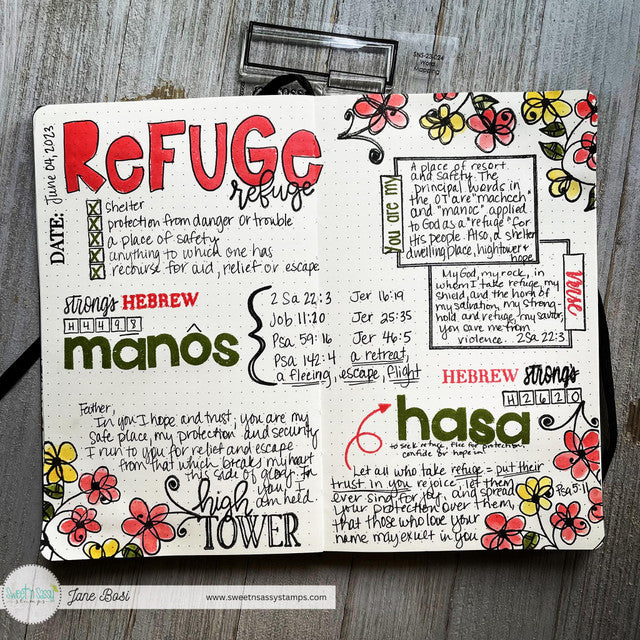 SNS-23C24
ReFUGe
refuge
DATE: June 04, 2023
shelter
protection from danger or trouble
a place of safety
anything to which one has
recourse for aid, relief or escape
strong's HEBREW
H4498
manôs
2 Sa 22:3
Job 11:20
Psa 59:16
Psa 142:4
Jer 16:19
Jer 25:35
Jer 46:5
a retreat,
a fleeing, escape, flight
Father,
In you I hope and trust, you are my
safe place, my protection and security
I run to you for relief and escape
from that which breaks my heart
this side of glory. In
you, I
am held.
high
TOWER
You are my
A place of resort
and safety. The
principal words in
the OT are "machceh"
and "manoc" applied
to God as a "refuge" for
His people. Also, a shelter
dwelling place, hightower &
hope
verse
My God, my rock, in
whom I take refuge, my
shield, and the horn of
my salvation, my strong-
hold and refuge, my savior,
you save me from
violence. 2Sa 22:3
HEBREW strong's
H2620
hasa
to seek refuge, flee for protection,
confide or hope in
Let all who take refuge = put their
trust in you rejoice, let them
ever sing for joy, and spread
your protection over them,
that those who love your
name may exult in you
Psa 5:11
Sweet n Sassy
stamps
Jane Bosi
www.sweetnsassystamps.com